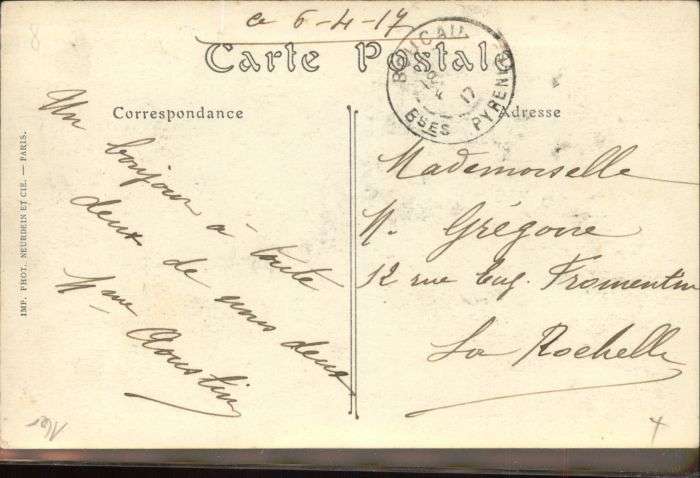 ce 6-4-17
Carte Postale
Correspondance
Adresse
BOUCAU
17
BSES PYRENEES
Un bonjour à toute
deux de nous deux
Mme
Mademoiselle
M. Grégoire
12 rue Eug. Fromentin
La Rochelle
IMP. PHOT. NEURDEIN ET CIE. — PARIS.